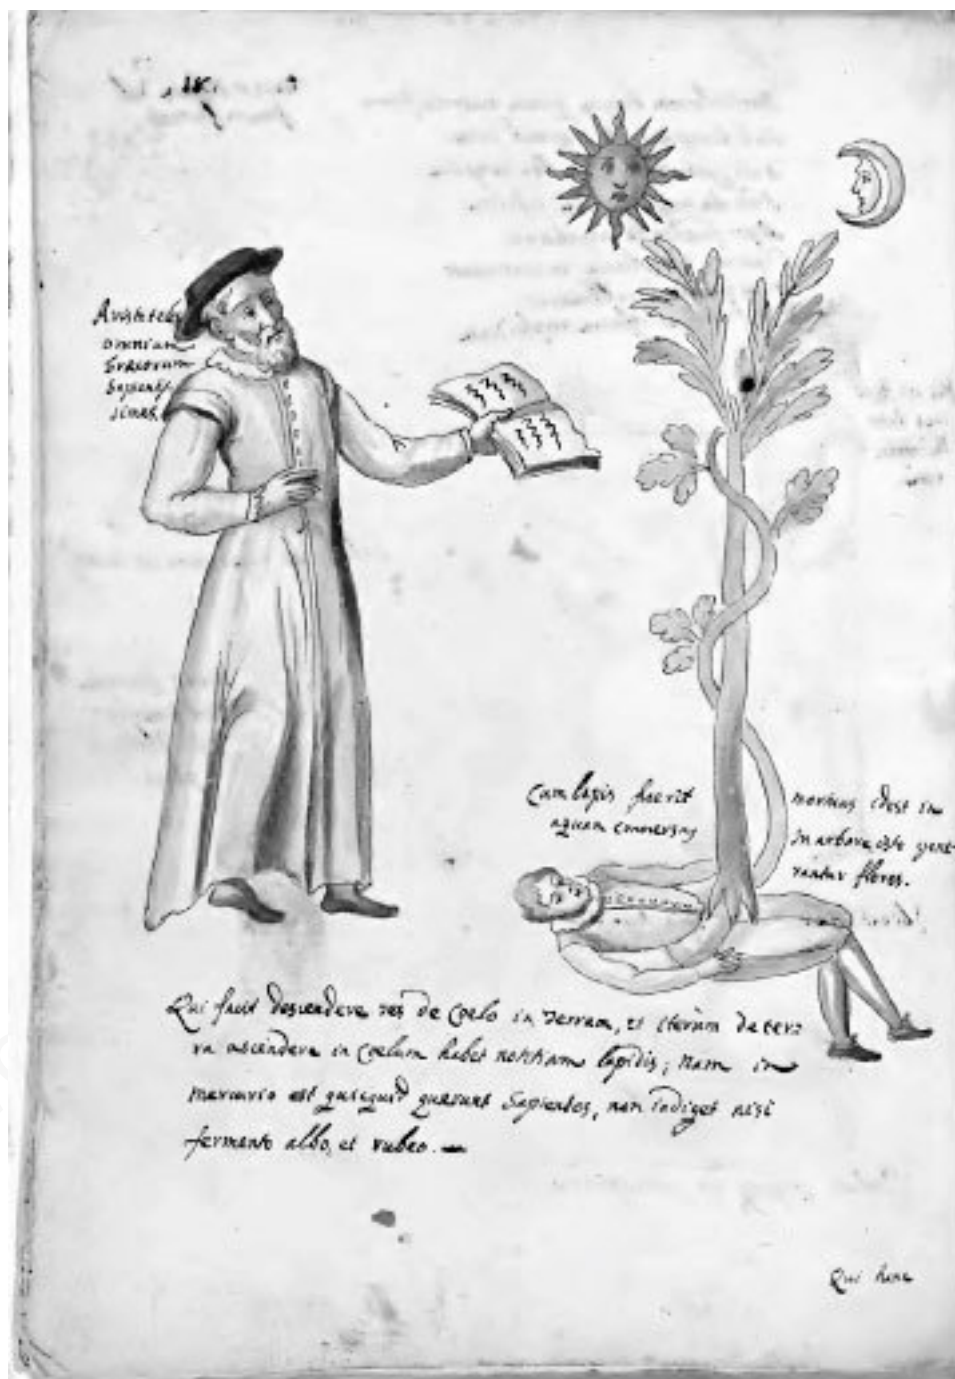 Aristoteles
omnium
Grecorum
Sapientis
simus.
Cum lapis fuerit
aquam conversus
moricus idest in
in arbore iste gene
rantur flores.
Qui facit descendere res de Coelo in Terram, et iterum de ter
ra ascendere in Coelum habet notitiam lapidis; Nam in
mercurio est quicquid querunt Sapientes, non indiget nisi
fermento albo, et rubeo.
Qui hanc